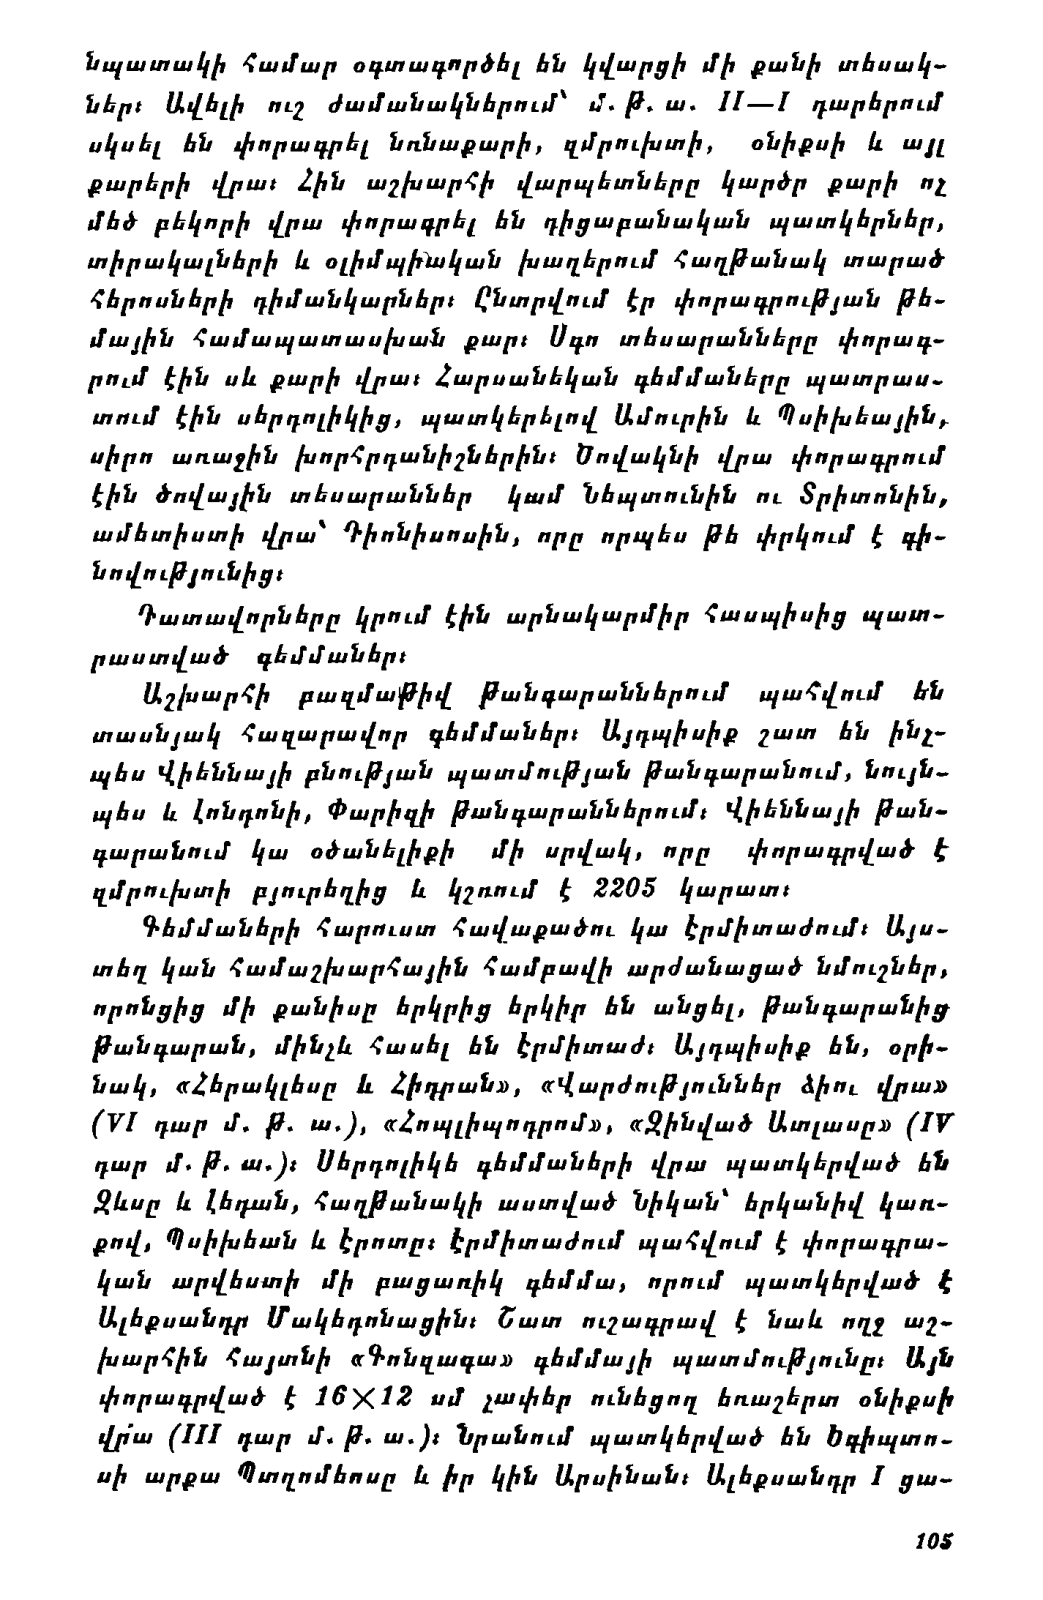 նպատակի համար օգտագործել են կվարցի մի քանի տեսակ-
ներ։ Ավելի ուշ ժամանակներում՝ մ. թ. ա. II—I դարերում
սկսել են փորագրել նռնաքարի, զմրուխտի, օնիքսի և այլ
քարերի վրա։ Հին աշխարհի վարպետները կարծր քարի ոչ
մեծ բեկորի վրա փորագրել են դիցաբանական պատկերներ,
տիրակալների և օլիմպիական խաղերում հաղթանակ տարած
հերոսների դիմանկարներ։ Ընտրվում էր փորագրության թե-
մային համապատասխան քար։ Սգո տեսարանները փորագ-
րում էին սև քարի վրա։ Հարսանեկան գեմմաները պատրաս-
տում էին սերդոլիկից, պատկերելով Ամուրին և Պսիխեային,
սիրո առաջին խորհրդանիշներին։ Ծովակնի վրա փորագրում
էին ծովային տեսարաններ կամ Նեպտունին ու Տրիտոնին,
ամետիստի վրա՝ Դիոնիսոսին, որը որպես թե փրկում է գի-
նովությունից։
Դատավորները կրում էին արնակարմիր հասպիսից պատ-
րաստված գեմմաներ։
Աշխարհի բազմաթիվ թանգարաններում պահվում են
տասնյակ հազարավոր գեմմաներ։ Այդպիսիք շատ են ինչ-
պես Վիեննայի բնության պատմության թանգարանում, նույն-
պես և Լոնդոնի, Փարիզի թանգարաններում։ Վիեննայի թան-
գարանում կա օծանելիքի մի սրվակ, որը փորագրված է
զմրուխտի բյուրեղից և կշռում է 2205 կարատ։
Գեմմաների հարուստ հավաքածու կա Էրմիտաժում։ Այս-
տեղ կան համաշխարհային համբավի արժանացած նմուշներ,
որոնցից մի քանիսը երկրից երկիր են անցել, թանգարանից
թանգարան, մինչև հասել են Էրմիտաժ։ Այդպիսիք են, օրի-
նակ, «Հերակլեսը և Հիդրան», «Վարժություններ ձիու վրա»
(VI դար մ. թ. ա.), «Հոպլիպոդրոմ», «Զինված Ատլասը» (IV
դար մ. թ. ա.)։ Սերդոլիկե գեմմաների վրա պատկերված են
Զևսը և Լեդան, հաղթանակի աստված Նիկան՝ երկանիվ կառ-
քով, Պսիխեան և Էրոտը։ Էրմիտաժում պահվում է փորագրա-
կան արվեստի մի բացառիկ գեմմա, որում պատկերված է
Ալեքսանդր Մակեդոնացին։ Շատ ուշագրավ է նաև ողջ աշ-
խարհին հայտնի «Գոնզագա» գեմմայի պատմությունը։ Այն
փորագրված է 16×12 սմ չափեր ունեցող եռաշերտ օնիքսի
վրա (III դար մ. թ. ա.)։ Նրանում պատկերված են Եգիպտո-
սի արքա Պտղոմեոսը և իր կին Արսինան։ Ալեքսանդր I ցա-
105